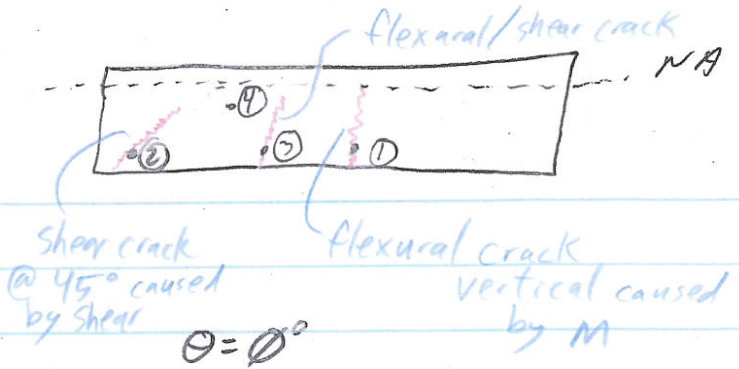 flexural/shear crack
NA
④
②
③
①
shear crack
@ 45° caused
by shear
flexural crack
vertical caused
by M
θ = Ø°